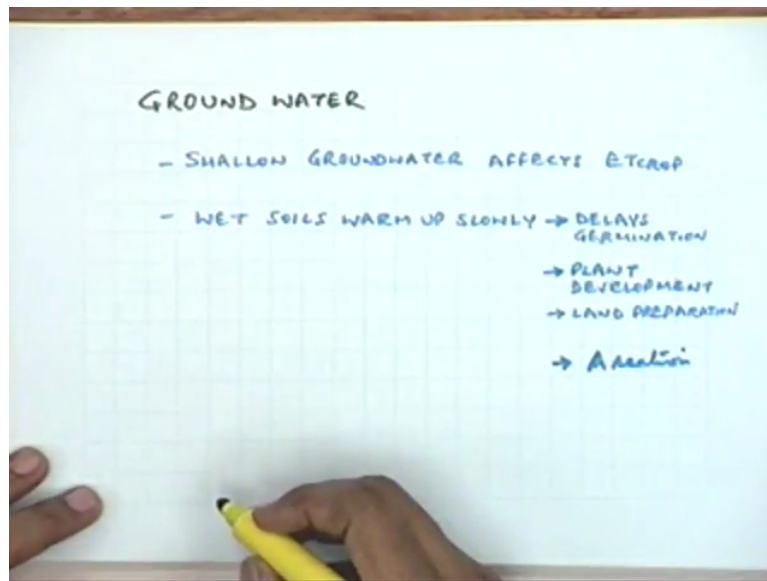 GROUND WATER
- SHALLOW GROUNDWATER AFFECTS ETCROP
- WET SOILS WARM UP SLOWLY → DELAYS
GERMINATION
→ PLANT
DEVELOPMENT
→ LAND PREPARATION
→ Aeration